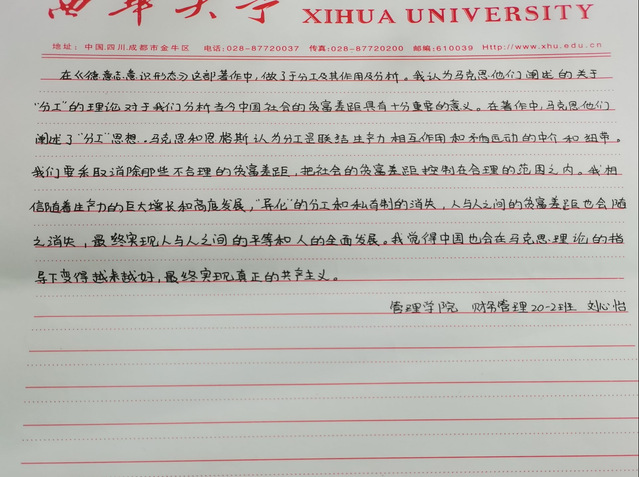 西华大学 XIHUA UNIVERSITY
地址：中国.四川.成都市金牛区 电话:028-87720037 传真:028-87720200 邮编:610039 Http://www.xhu.edu.cn
在《德意志意识形态》这部著作中，做了于分工及其作用及分析。我认为马克思他们阐述的关于
“分工”的理论对于我们分析当今中国社会的贫富差距具有十分重要的意义。在著作中，马克思他们
阐述了“分工”思想，马克思和恩格斯认为分工是联结生产力相互作用和矛盾运动的中介和纽带。
我们要采取消除那些不合理的贫富差距，把社会的贫富差距控制在合理的范围之内。我相
信随着生产力的巨大增长和高度发展，“异化”的分工和私有制的消失，人与人之间的贫富差距也会随
之消失，最终实现人与人之间的平等和人的全面发展。我觉得中国也会在马克思理论的指
导下变得越来越好，最终实现真正的共产主义。
管理学院 财务管理20-2班 刘心怡